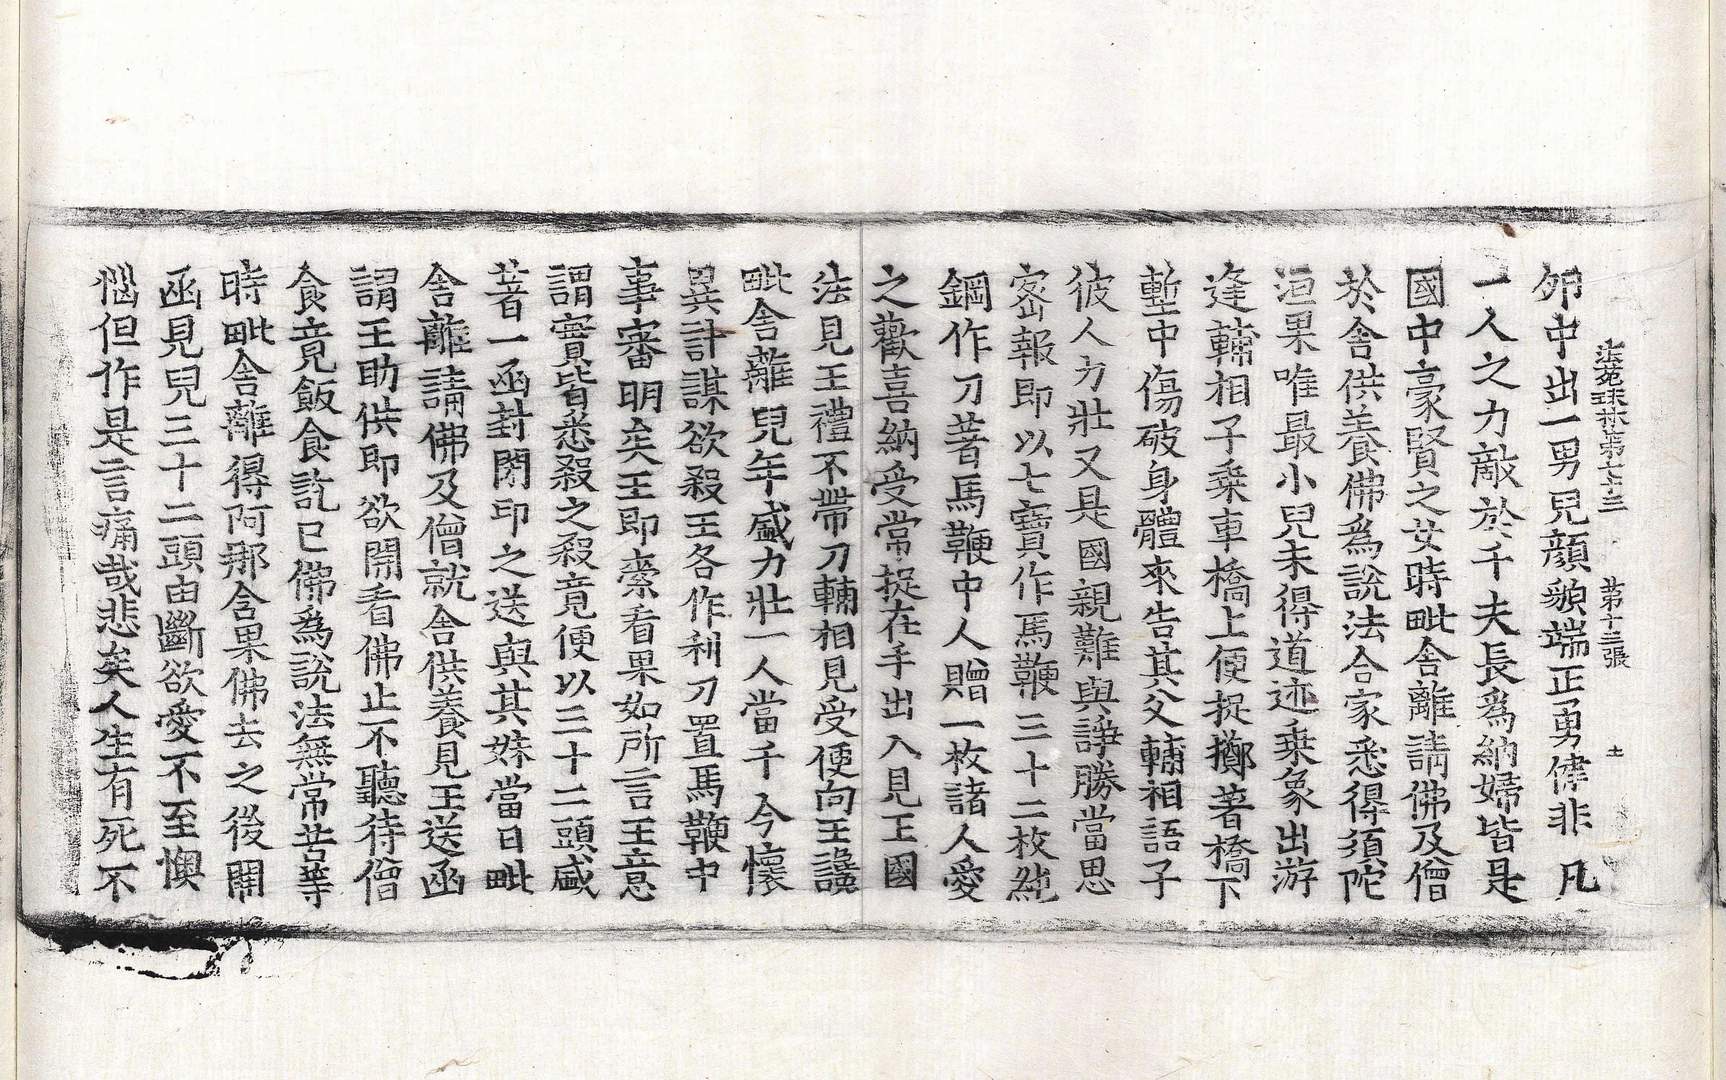 法苑珠林第七十三 第十三張 土
卵中出一男兒顏貌端正勇健非凡
一人之力敵於千夫長爲納婦皆是
國中豪賢之女時毗舍離請佛及僧
於舍供養佛爲說法合家悉得須陀
洹果唯最小兒未得道迹乘象出游
逢輔相子乘車橋上便捉擲著橋下
塹中傷破身體來告其父輔相語子
彼人力壯又是國親難與諍勝當思
密報即以七寶作馬鞭三十二枚純
鋼作刀著馬鞭中人贈一枚諸人愛
之歡喜納受常捉在手出入見王國
法見王禮不帶刀輔相見受便向王讒
毗舍離兒年盛力壯一人當千今懷
異計謀欲殺王各作利刀置馬鞭中
事審明矣王即索看果如所言王意
謂實皆悉殺之殺竟便以三十二頭盛
著一函封閉印之送與其妹當日毗
舍離請佛及僧就舍供養見王送函
謂王助供即欲開看佛止不聽待僧
食竟飯食訖已佛爲說法無常苦等
時毗舍離得阿那含果佛去之後開
函見兒三十二頭由斷欲愛不至懊
惱但作是言痛哉悲矣人生有死不